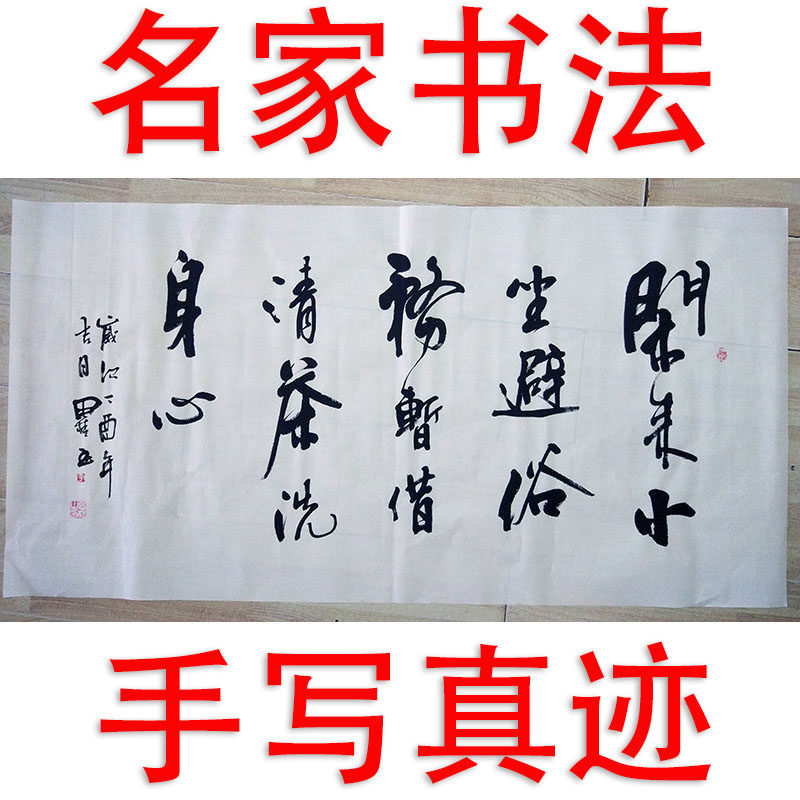 名家书法
閑来小
坐避俗
務暫借
清茶洗
身心
歲次丁酉年
吉日
手写真迹